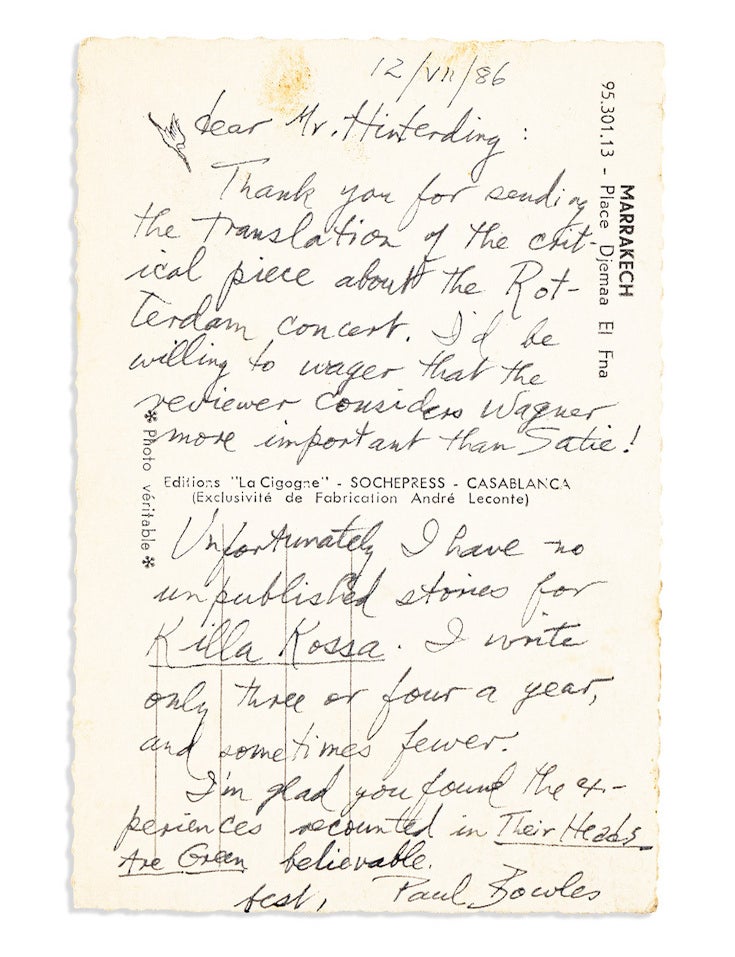 12/VII/86
dear Mr. Hinterding:
Thank you for sending
the translation of the crit-
ical piece about the Rot-
terdam concert. I'd be
willing to wager that the
reviewer considers Wagner
more important than Satie!
Editions "La Cigogne" - SOCHEPRESS - CASABLANCA
(Exclusivité de Fabrication André Leconte)
Unfortunately I have no
unpublished stories for
Killa Kossa. I write
only three or four a year,
and sometimes fewer.
I'm glad you found the ex-
periences recounted in Their Heads
Are Green believable.
best, Paul Bowles
MARRAKECH
95.301.13 - Place Djemaa El Fna
* Photo véritable *